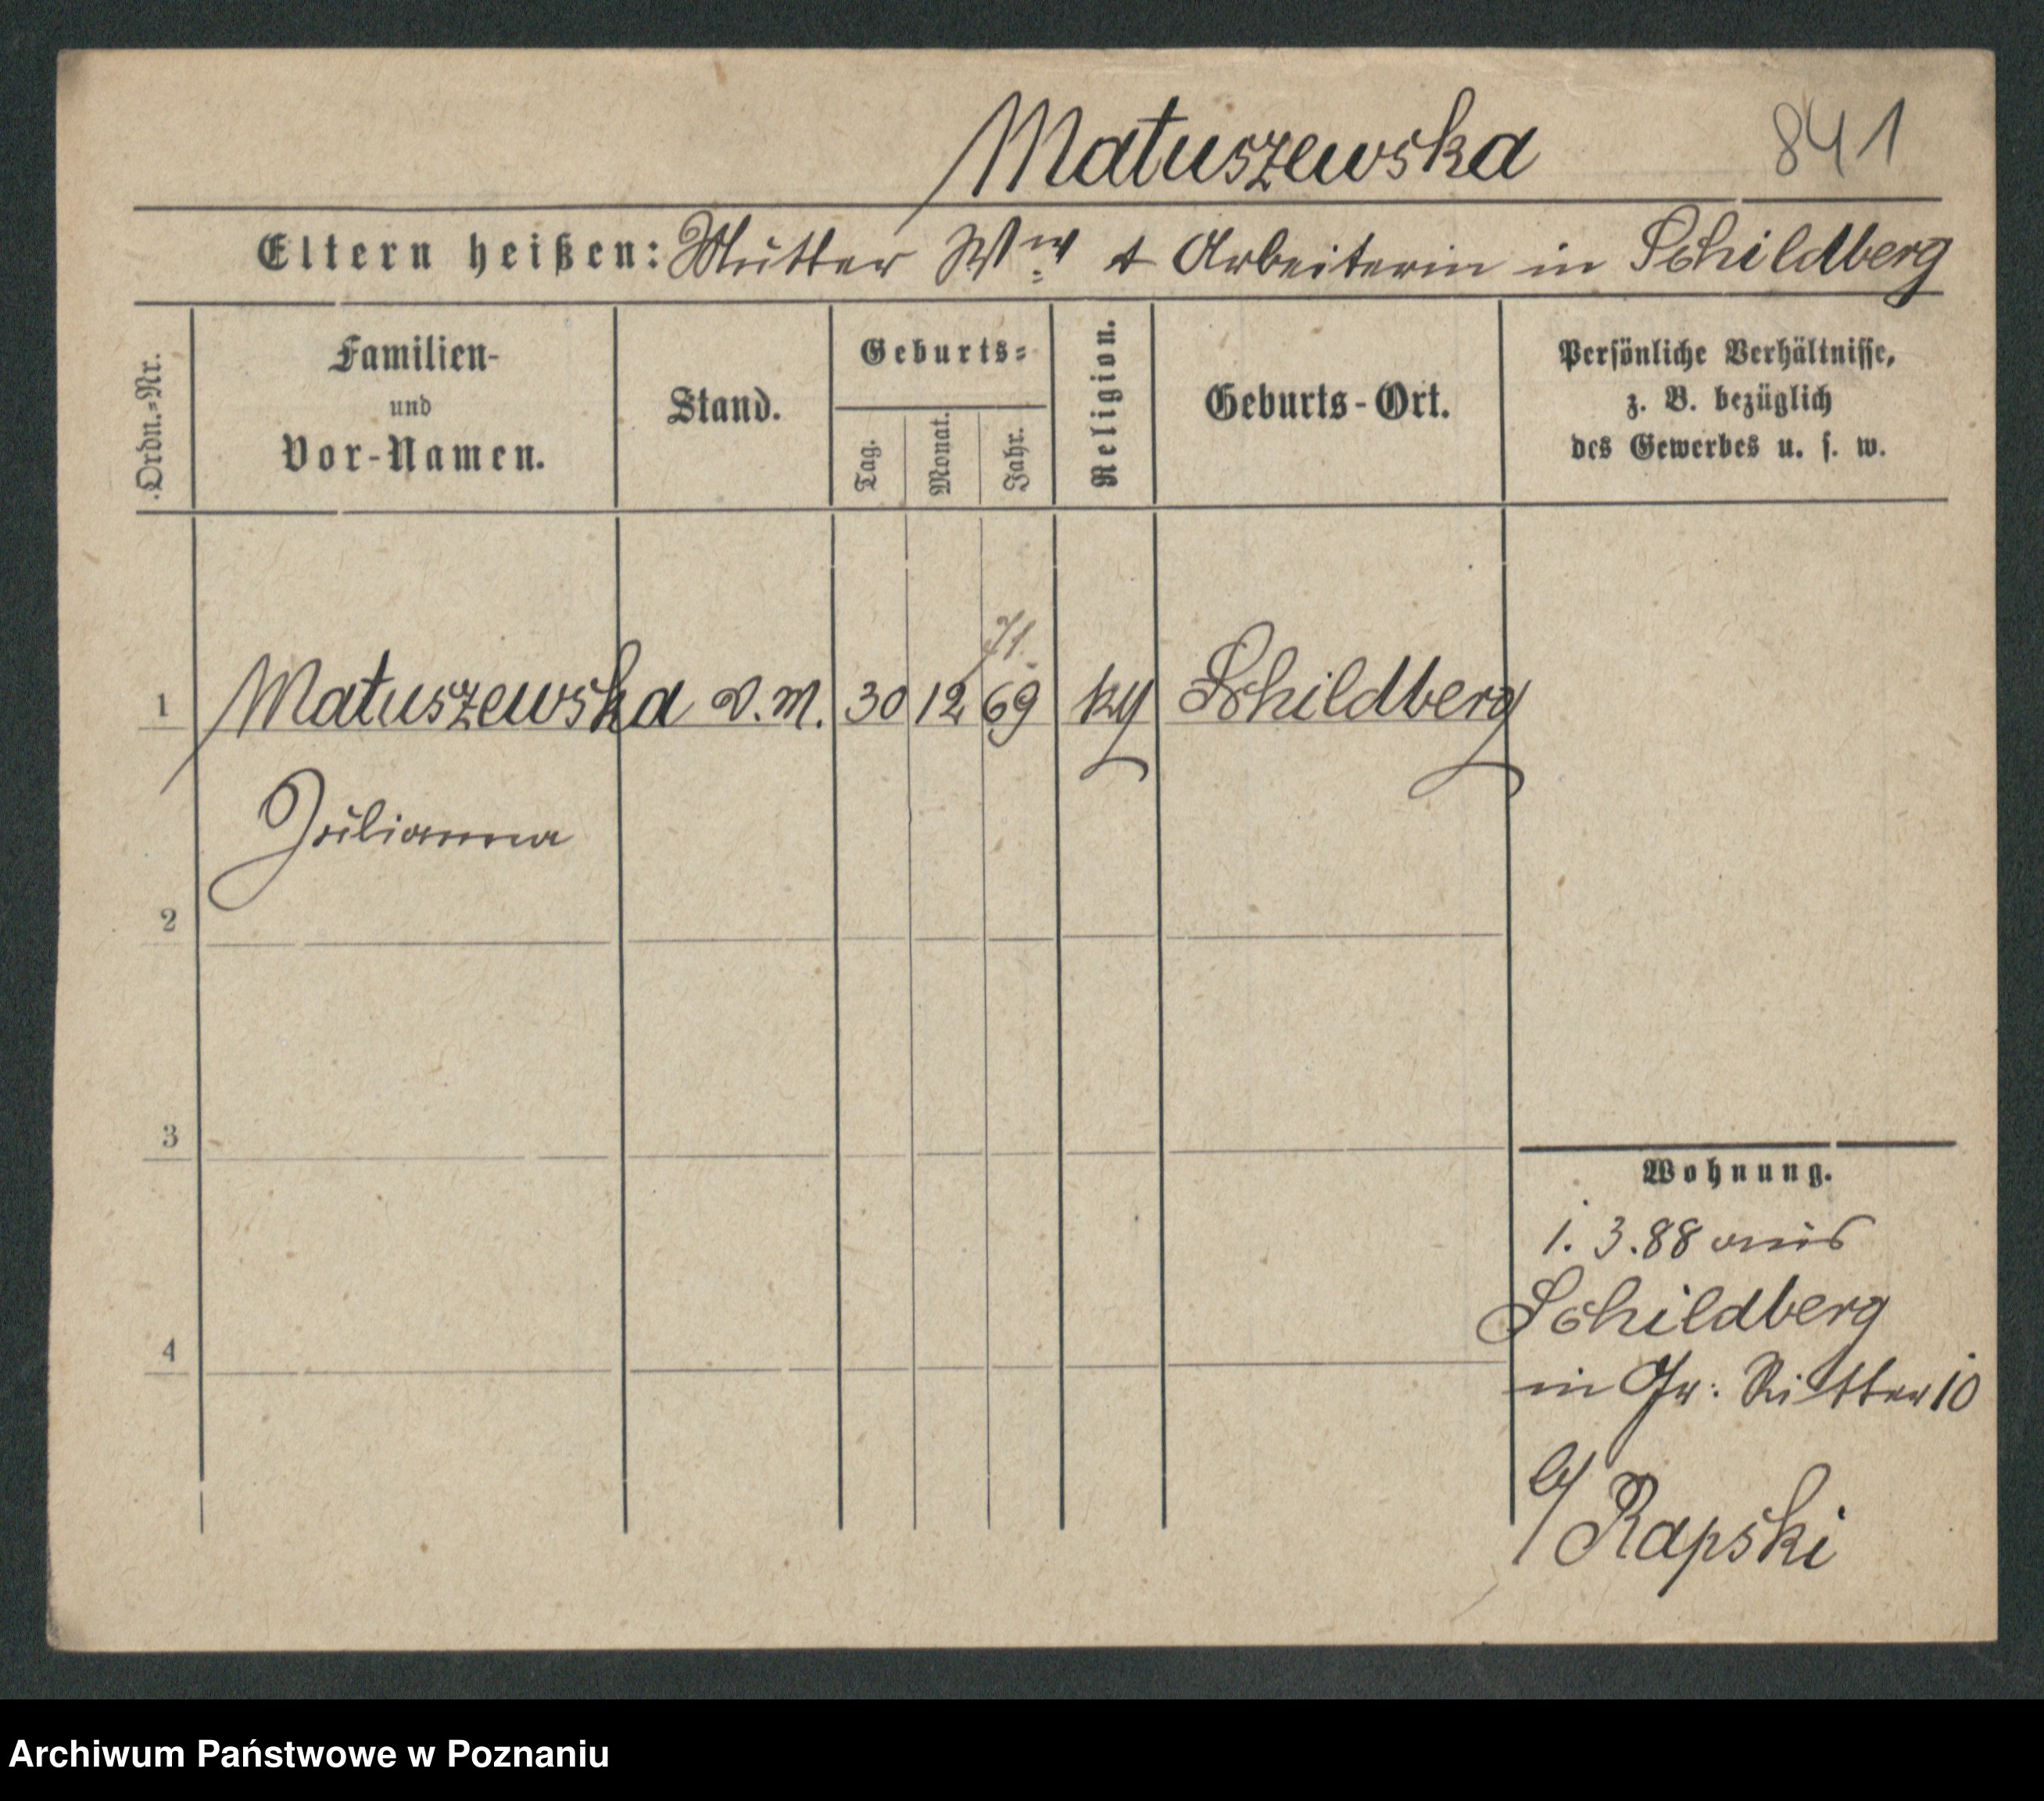 Matuszewska 841
Eltern heißen: Mutter Ww & Arbeiterin in Schildberg
Ordn.=Nr.
Familien-
und
Vor-Namen.
Stand.
Geburts=
Tag.
Monat.
Jahr.
Religion.
Geburts-Ort.
Persönliche Verhältnisse,
z. B. bezüglich
des Gewerbes u. s. w.
71.
1 Matuszewska D.M. 30 12 69 kg Schildberg
Julianna
2
3
Wohnung.
1. 3. 88 aus
Schildberg
4
in Gr: Ritter 10
b/ Rapski
Archiwum Państwowe w Poznaniu